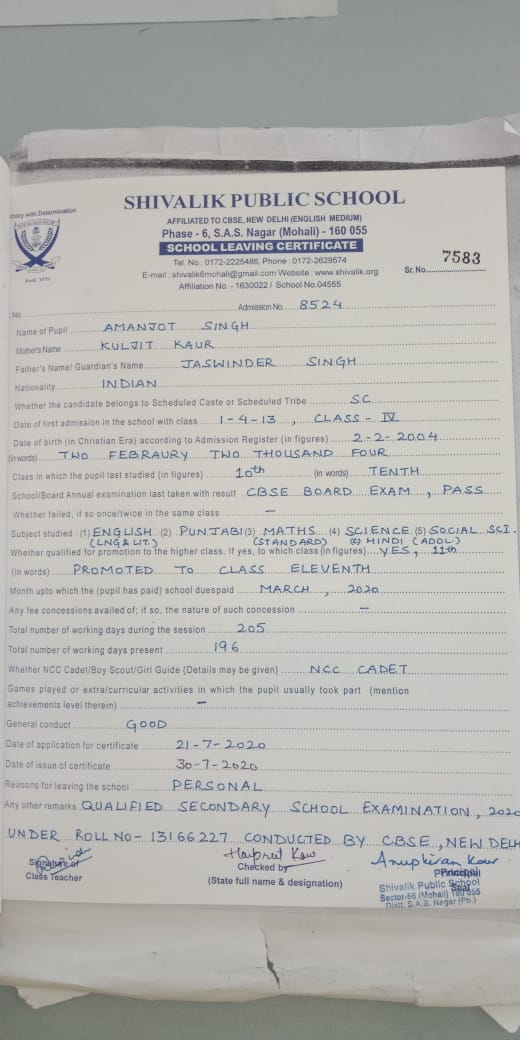 ctory with Determination
SHIVALIK PUBLIC SCHOOL
AFFILIATED TO CBSE, NEW DELHI (ENGLISH MEDIUM)
Phase - 6, S.A.S. Nagar (Mohali) - 160 055
SCHOOL LEAVING CERTIFICATE
Tel. No.: 0172-2225486, Phone : 0172-2629574
E-mail : shivalik6mohali@gmail.com Website : www.shivalik.org
Affiliation No. - 1630022 / School No.04555
Estd. 1976
Sr.No. 7583
No. Admission No. 8524
Name of Pupil AMANJOT SINGH
Mother's Name KULJIT KAUR
Father's Name/ Guardian's Name JASWINDER SINGH
Nationality INDIAN
Whether the candidate belongs to Scheduled Caste or Scheduled Tribe SC
Date of first admission in the school with class 1-4-13, CLASS-IV
Date of birth (in Christian Era) according to Admission Register (in figures) 2-2-2004
(in words) TWO FEBRAURY TWO THOUSAND FOUR
Class in which the pupil last studied (in figures) 10th (in words) TENTH
School/Board Annual examination last taken with result CBSE BOARD EXAM, PASS
Whether failed, if so once/twice in the same class –
Subject studied : (1) ENGLISH (2) PUNJABI (3) MATHS (4) SCIENCE (5) SOCIAL SCI.
(LNG & LIT.) (STANDARD) (6) HINDI (ADDL.)
Whether qualified for promotion to the higher class. If yes, to which class (in figures) YES, 11th
(in words) PROMOTED TO CLASS ELEVENTH
Month upto which the (pupil has paid) school duespaid MARCH, 2020
Any fee concessions availed of; if so, the nature of such concession –
Total number of working days during the session 205
Total number of working days present 196
Whether NCC Cadet/Boy Scout/Girl Guide (Details may be given) NCC CADET
Games played or extra/curricular activities in which the pupil usually took part (mention
achievements level therein) –
General conduct GOOD
Date of application for certificate 21-7-2020
Date of issue of certificate 30-7-2020
Reasons for leaving the school PERSONAL
Any other remarks QUALIFIED SECONDARY SCHOOL EXAMINATION, 2020
UNDER ROLL NO- 13166227 CONDUCTED BY CBSE, NEW DELH
Harpreet Kaur Anupkiran Kaur
Signature of Checked by Principal
Class Teacher (State full name & designation) Seal
Shivalik Public School
Sector-56 (Mohali) 160 055
Distt. S.A.S. Nagar (Pb.)